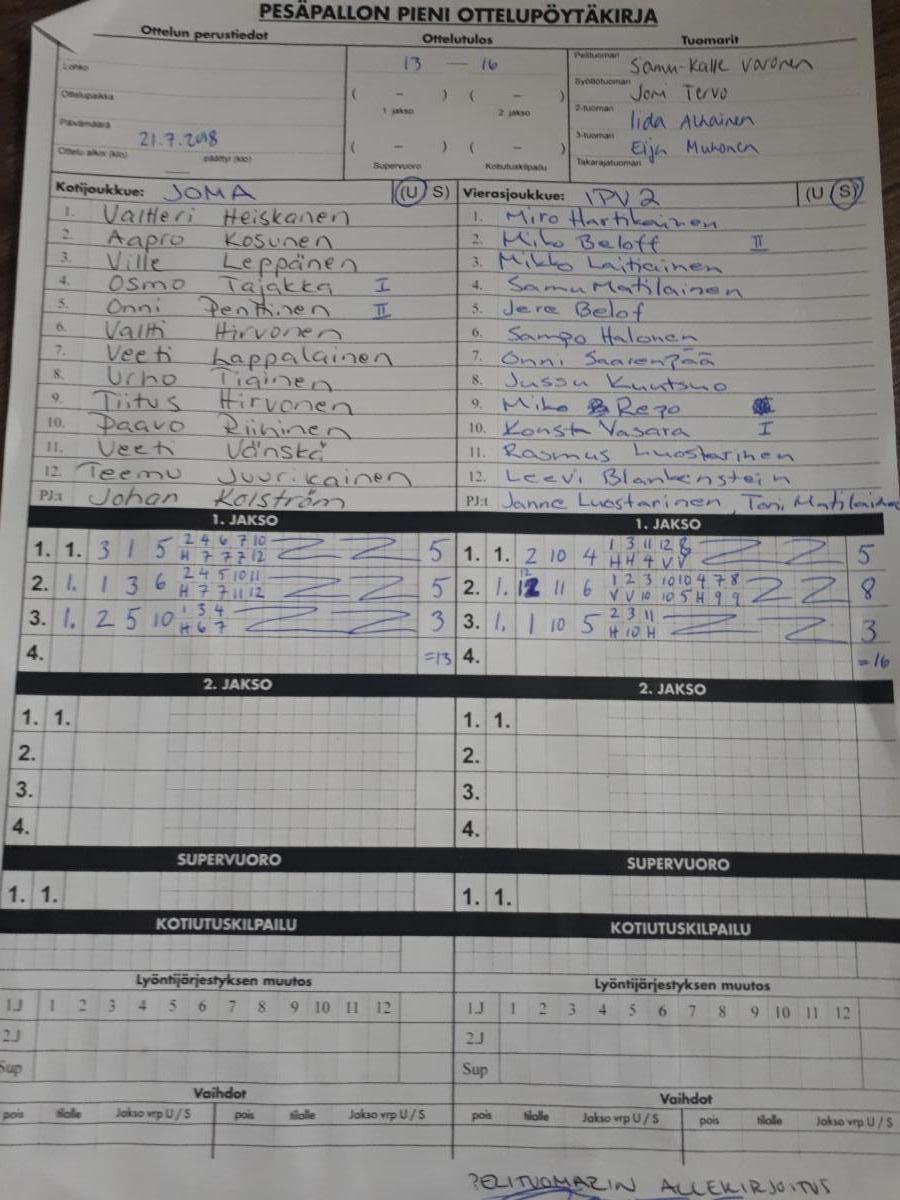 PESÄPALLON PIENI OTTELUPÖYTÄKIRJA
Ottelun perustiedot
Ottelutulos
Tuomarit
Lohko
Ottelupaikka
Päivämäärä 21.7.2018
Ottelu alkoi (klo) päättyi (klo)
13 — 16
( – ) ( – )
1 jakso 2 jakso
( – ) ( – )
Supervuoro Kotiutuskilpailu
Pelituomari Samu-Kalle Varonen
Syöttötuomari Joni Tervo
2-tuomari Iida Alhainen
3-tuomari Eija Muhonen
Takarajatuomari
Kotijoukkue: JOMA (U S)
1. Valtteri Heiskanen
2. Aapro Kosunen
3. Ville Leppänen
4. Osmo Tajakka I
5. Onni Penttinen II
6. Valtti Hirvonen
7. Veeti Lappalainen
8. Urho Tiainen
9. Tiitus Hirvonen
10. Paavo Riihinen
11. Veeti Vänskä
12. Teemu Juurikainen
PJ:t Johan Kolström
Vierasjoukkue: IPV 2 (U S)
1. Miro Hartikainen
2. Miko Beloff II
3. Mikko Laitiainen
4. Samu Matilainen
5. Jere Belof
6. Sampo Halonen
7. Onni Saarenpää
8. Jussu Kuutsuo
9. Miko Repo
10. Konsta Vasara I
11. Rasmus Luostarinen
12. Leevi Blankenstein
PJ:t Janne Luostarinen, Toni Matilainen
1. JAKSO
1. 1. 3 1 5 2 4 6 7 10 5
H 7 7 7 12
2. 1. 1 3 6 2 4 5 10 11 5
H 7 7 11 12
3. 1. 2 5 10 1 3 4 3
H 6 7
4. =13
1. JAKSO
1. 1. 2 10 4 1 3 11 12 8 5
H H 4 V V
2. 1. 12 11 6 1 2 3 10 10 4 7 8 8
V V 10 10 5 H 9 9
3. 1. 1 10 5 2 3 11 3
H 10 H
4. =16
2. JAKSO
1. 1.
2.
3.
4.
2. JAKSO
1. 1.
2.
3.
4.
SUPERVUORO
1. 1.
SUPERVUORO
1. 1.
KOTIUTUSKILPAILU
KOTIUTUSKILPAILU
Lyöntijärjestyksen muutos
1.J 1 2 3 4 5 6 7 8 9 10 11 12
2.J
Sup
Lyöntijärjestyksen muutos
1.J 1 2 3 4 5 6 7 8 9 10 11 12
2.J
Sup
Vaihdot
pois tilalle Jakso vrp U / S pois tilalle Jakso vrp U / S
Vaihdot
pois tilalle Jakso vrp U / S pois tilalle Jakso vrp U / S
PELITUOMARIN ALLEKIRJOITUS